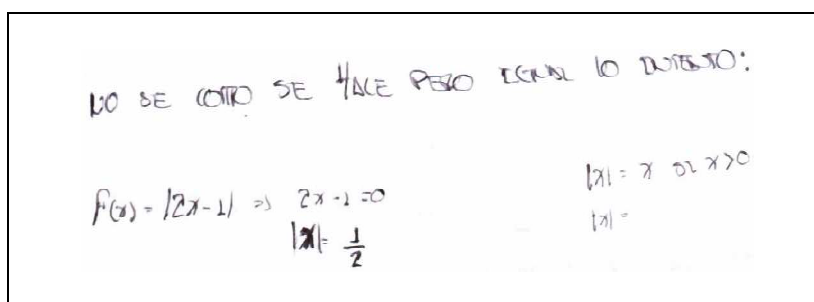 NO SE COMO SE HACE PERO IGUAL LO INTENTO:
F(x) = |2x-1| => 2x-1=0
|x|= 1/2
|x| = x si x>0
|x| =